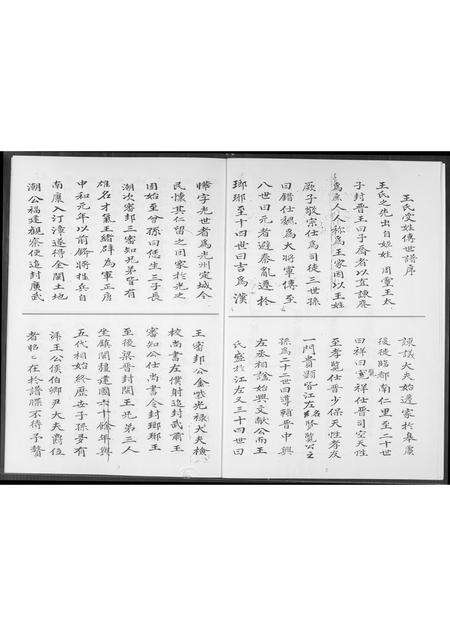 王氏受姓傳世譜序
王氏之先出自姬姓周靈王太
子封晉王曰子喬者以直諫廢
為庶人人稱為王家因以王姓
厥子敬宗仕為司徒三世孫
曰錯仕魏為大將軍傳至
八世曰元者避秦亂遷於
瑯琊至十四世曰吉為漢
諫議大夫始遷家於皋虞
後徙臨都南仁里至二十世
曰祥曰覽祥仕晉司空天性
至孝覽仕晉少保天性孝友
一門貴顯官江左名覽公之
孫為二十二世曰導輔晉中興
左丞相謚始興文獻公而王
氏盛於江左又三十四世曰
曄字光世者為光州定城令
民懷其仁留之因家於光之
固始至曾孫曰恁生三子長
潮次審邽三審知兄弟皆有
雄名才氣王緒辟為軍正唐
中和元年以前鋒將提兵自
南康入汀漳遂得全閩土地
潮公福建觀察使追封廣武
王審邽公金紫光祿大夫檢
校尚書左僕射追封武肅王
審知公仕尚書令封瑯琊王
至後梁晉封閩王兄弟三人
坐鎮閩疆建國六十餘年與
五代相始終歷世子孫有
王公侯伯卿尹大夫爵位
者昭々在於譜牒不待予贅